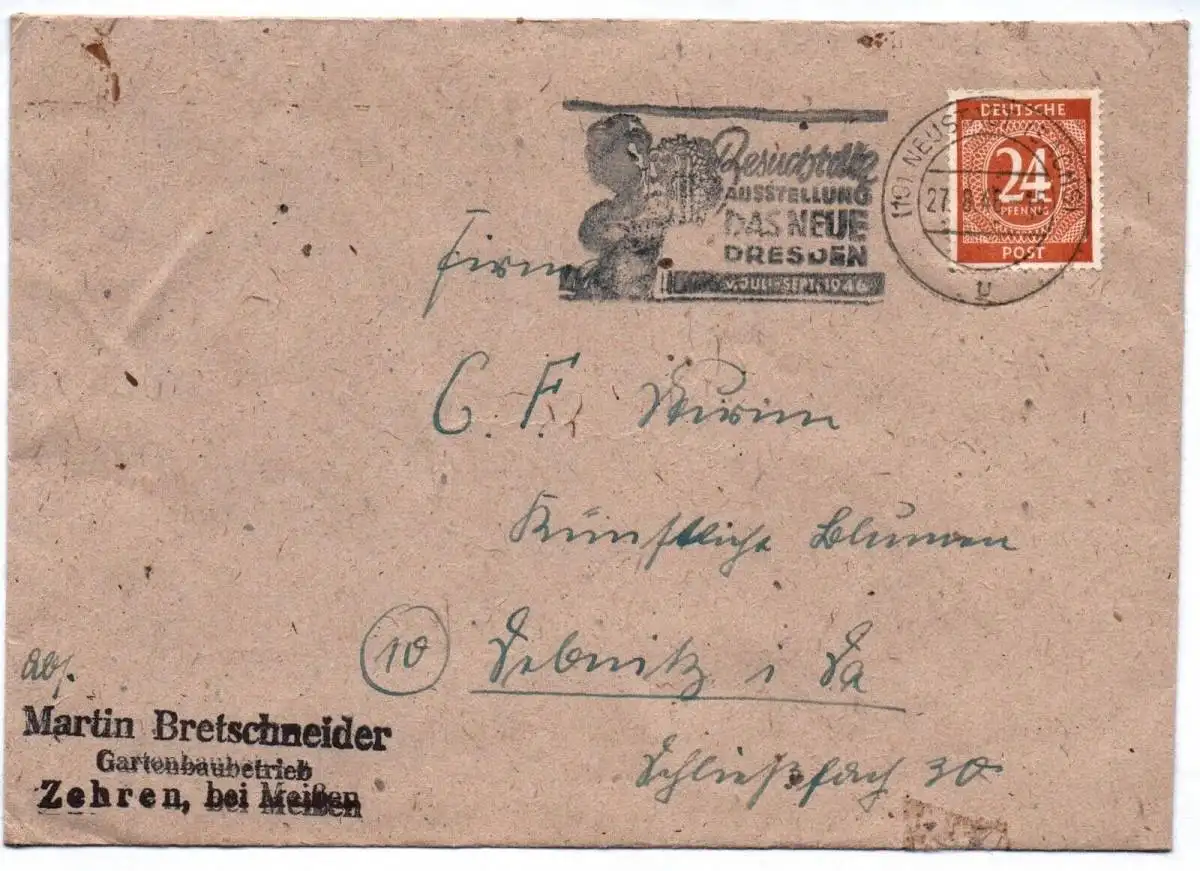 Besucht die
AUSSTELLUNG
DAS NEUE
DRESDEN
V. JULI-SEPT. 1946
DEUTSCHE
24
PFENNIG
POST
(10) NEUST
27.8.46
u
Firma
C. F. Wurim
Künstliche Blumen
(10) Sebnitz i Sa
Schließfach 30
Abs.
Martin Bretschneider
Gartenbaubetrieb
Zehren, bei Meißen